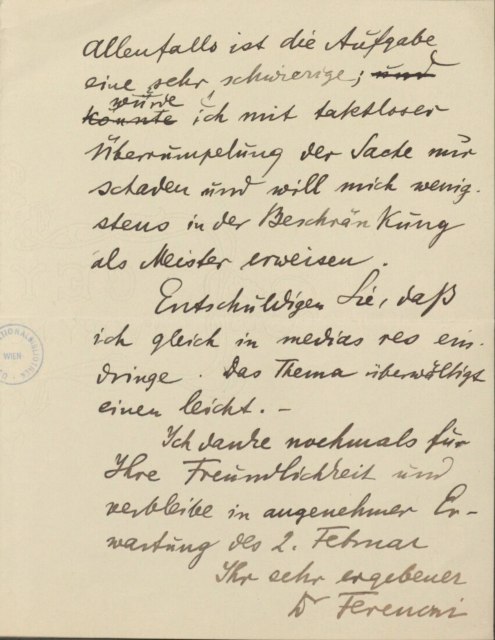 Allenfalls ist die Aufgabe
eine sehr schwierige; und
würde
könnte ich mit taktloser
Überrumpelung der Sache nur
schaden und will mich wenig-
stens in der Beschränkung
als Meister erweisen.
Entschuldigen Sie, daß
ich gleich in medias res ein-
dringe. Das Thema überwältigt
einen leicht. –
Ich danke nochmals für
Ihre Freundlichkeit und
verbleibe in angenehmer Er-
wartung des 2. Februar
Ihr sehr ergebener
Dr Ferenczi
WIEN